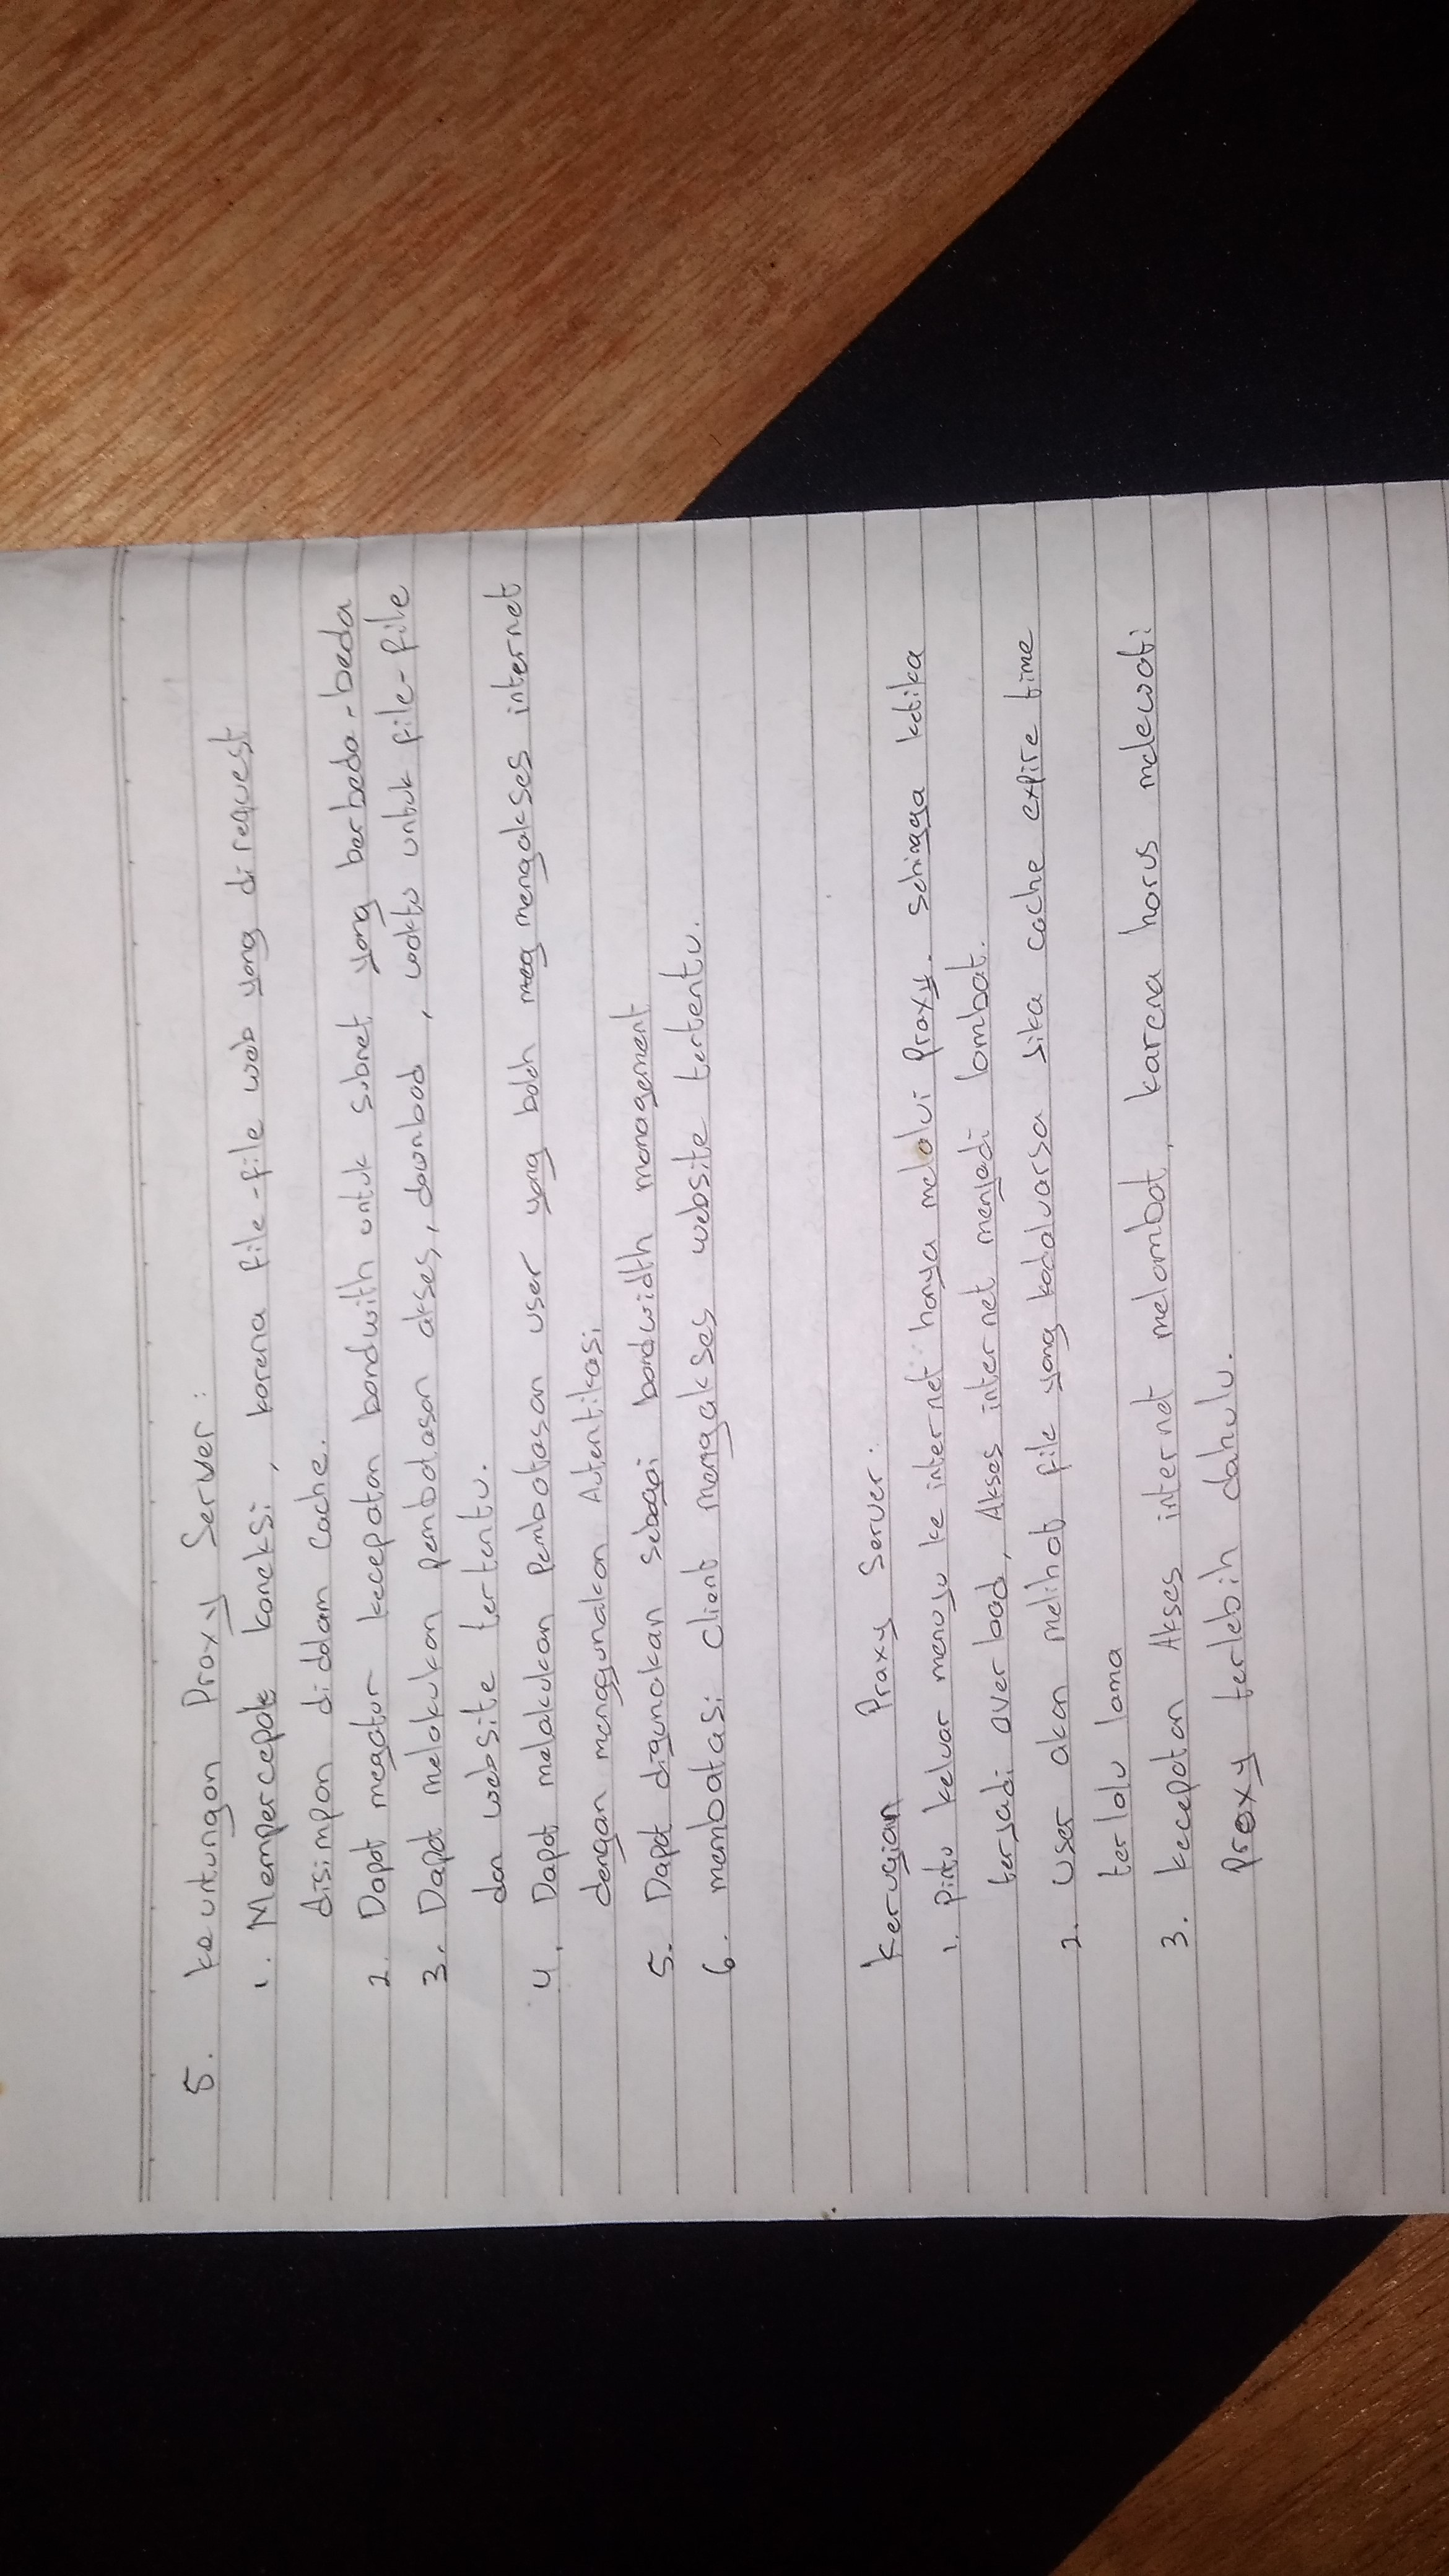 5. keuntungan Proxy Server :
1. Mempercepat koneksi, karena file-file web yang direquest
disimpan didalam Cache.
2. Dapat megatur kecepatan bandwith untuk subnet yang berbeda-beda
3. Dapat melakukan pembatasan akses, download, waktu untuk file-file
dan website tertentu.
4. Dapat melakukan Pembatasan user yang boleh meg mengakses internet
dengan menggunakan Autentikasi
5. Dapat digunakan sebagai bandwidth management
6. membatasi Client mengakses website tertentu.
Kerugian Proxy Server :
1. Pintu keluar menuju ke internet hanya melalui Proxy. sehingga ketika
terjadi overload, Akses internet menjadi lambat.
2. User akan melihat file yang kadaluarsa jika cache expire time
terlalu lama
3. kecepatan Akses internet melambat, karena harus melewati
Proxy terlebih dahulu.